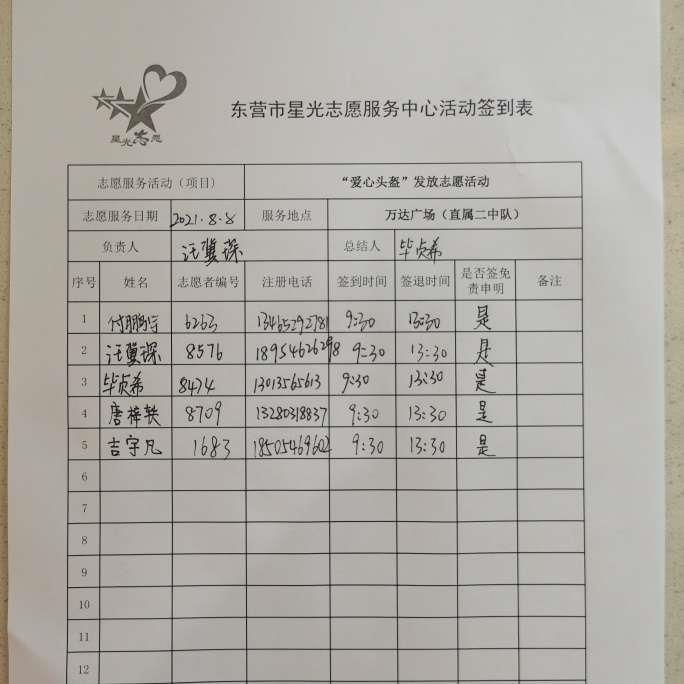 星光志愿
东营市星光志愿服务中心活动签到表
志愿服务活动（项目） “爱心头盔”发放志愿活动
志愿服务日期 2021.8.8 服务地点 万达广场（直属二中队）
负责人 汪冀琛 总结人 毕贞希
序号 姓名 志愿者编号 注册电话 签到时间 签退时间 是否签免责申明 备注
1 付鹏 6263 13465292781 9:30 13:30 是
2 汪冀琛 8576 18954626298 9:30 13:30 是
3 毕贞希 8474 13013565613 9:30 13:30 是
4 唐梓轶 8709 13280318837 9:30 13:30 是
5 吉宇凡 1683 18505469602 9:30 13:30 是
6
7
8
9
10
11
12